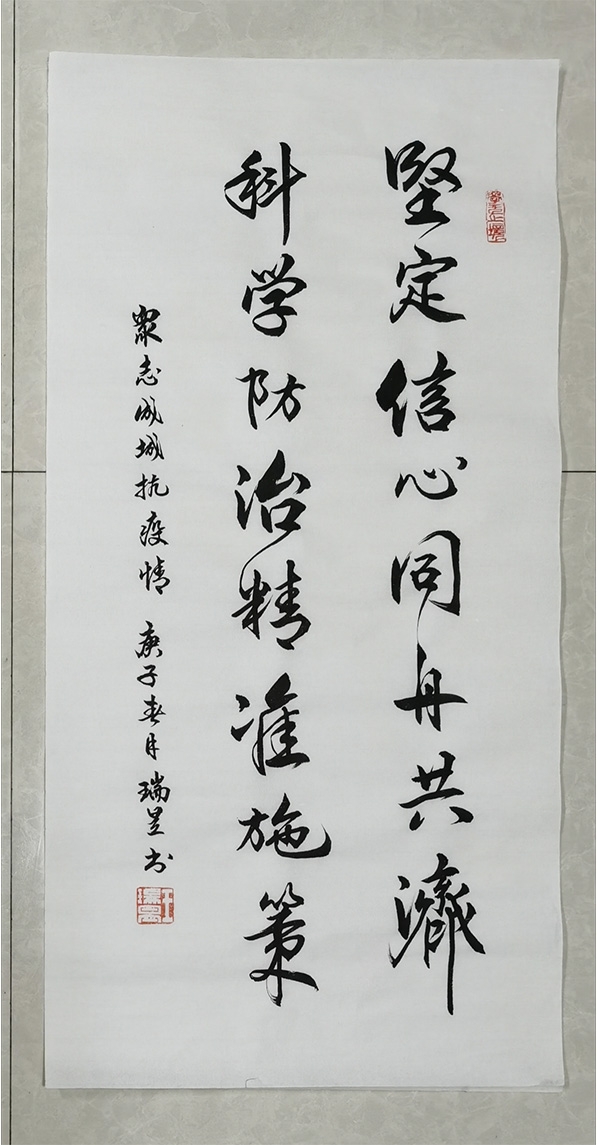 堅定信心同舟共濟
科学防治精准施策
眾志成城抗疫情 庚子春月 瑞昱书